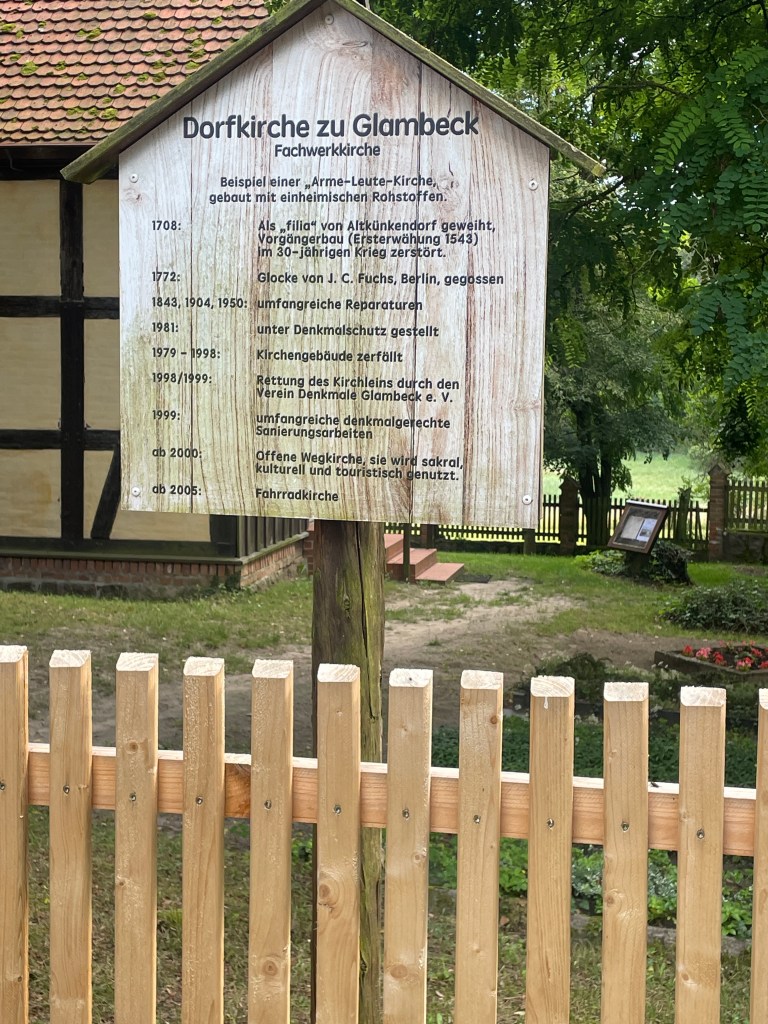 Dorfkirche zu Glambeck
Fachwerkkirche
Beispiel einer „Arme-Leute-Kirche,
gebaut mit einheimischen Rohstoffen.
1708: Als „filia" von Altkünkendorf geweiht,
Vorgängerbau (Ersterwähung 1543)
im 30-jährigen Krieg zerstört.
1772: Glocke von J. C. Fuchs, Berlin, gegossen
1843, 1904, 1950: umfangreiche Reparaturen
1981: unter Denkmalschutz gestellt
1979 - 1998: Kirchengebäude zerfällt
1998/1999: Rettung des Kirchleins durch den
Verein Denkmale Glambeck e. V.
1999: umfangreiche denkmalgerechte
Sanierungsarbeiten
ab 2000: Offene Wegkirche, sie wird sakral,
kulturell und touristisch genutzt.
ab 2005: Fahrradkirche